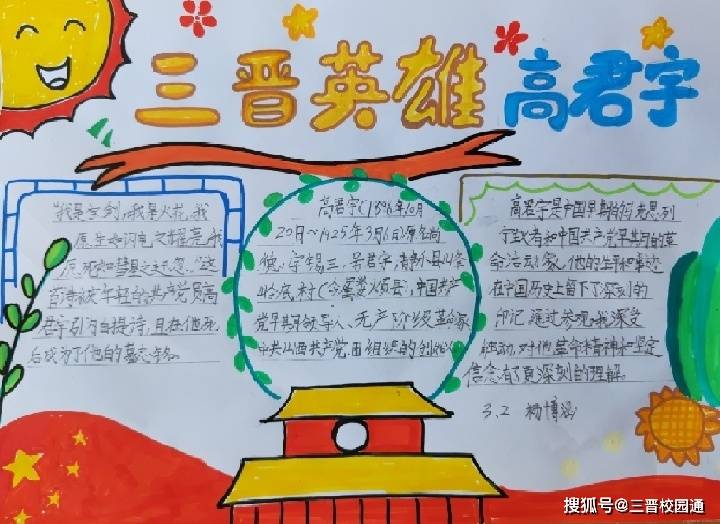 三晋英雄 高君宇
"我是宝剑，我是火花，我
愿生如闪电之耀亮，我
愿死如彗星之迅忽。"这
首诗被年轻的共产党员高
君宇引为自提诗，且在他死
后成为了他的墓志铭。
高君宇（1896年10月
20日～1925年3月6日）原名尚
德，字锡三，号君宇，静乐县
峰底村（今属娄烦县），中国共产
党早期领导人、无产阶级革命家
中共山西共产党、团组织的创始人
高君宇是中国早期的马克思列
宁主义者和中国共产党早期的革
命活动家，他的生平和事迹
在中国历史上留下了深刻的
印记，通过参观，我深受
触动，对他革命精神和坚定
信念有了更深刻的理解。
3.2 杨博涵
搜狐号@三晋校园通